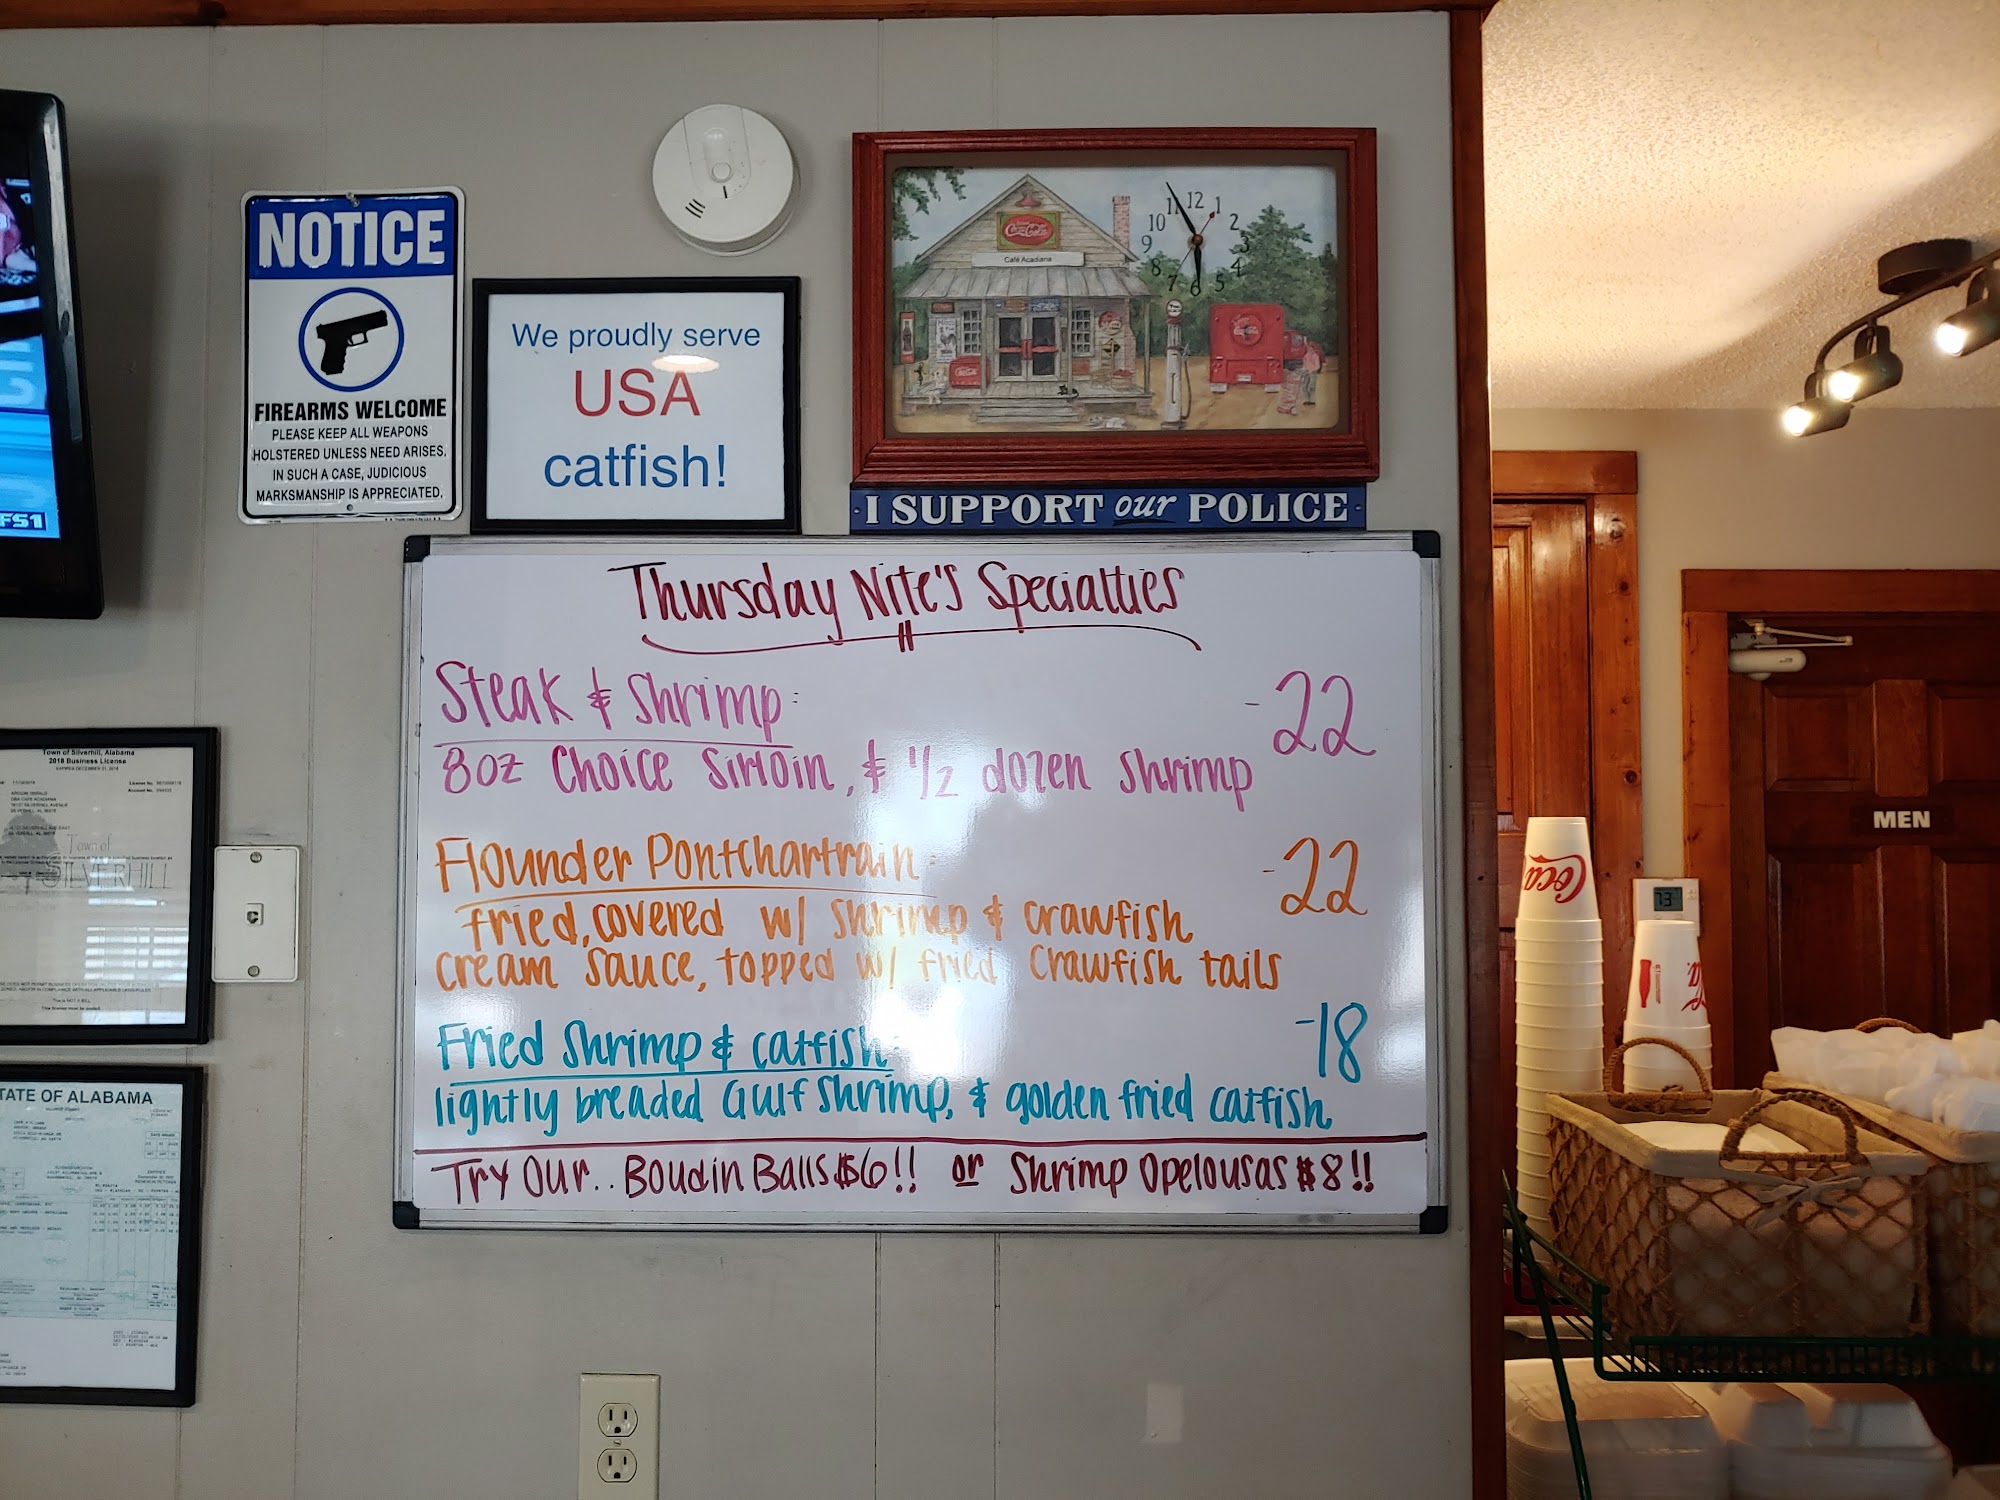 NOTICE
FIREARMS WELCOME
PLEASE KEEP ALL WEAPONS
HOLSTERED UNLESS NEED ARISES.
IN SUCH A CASE, JUDICIOUS
MARKSMANSHIP IS APPRECIATED.
We proudly serve
USA
catfish!
Coca-Cola
Café Acadiana
12
1
2
3
4
5
6
7
8
9
10
11
I SUPPORT our POLICE
FS1
Thursday Nite's Specialties
Steak & Shrimp: -22
8oz Choice Sirloin, & 1/2 dozen Shrimp
Flounder Pontchartrain: -22
fried, covered w/ shrimp & crawfish
cream sauce, topped w/ fried crawfish tails
Fried Shrimp & catfish: -18
lightly breaded Gulf Shrimp, & golden fried catfish
Try Our.. Boudin Balls $6!! or Shrimp Opelousas $8!!
Town of Silverhill, Alabama
2018 Business License
Town of
SILVERHILL
This is NOT A BILL
This license must be posted
TATE OF ALABAMA
MEN
73
Coca